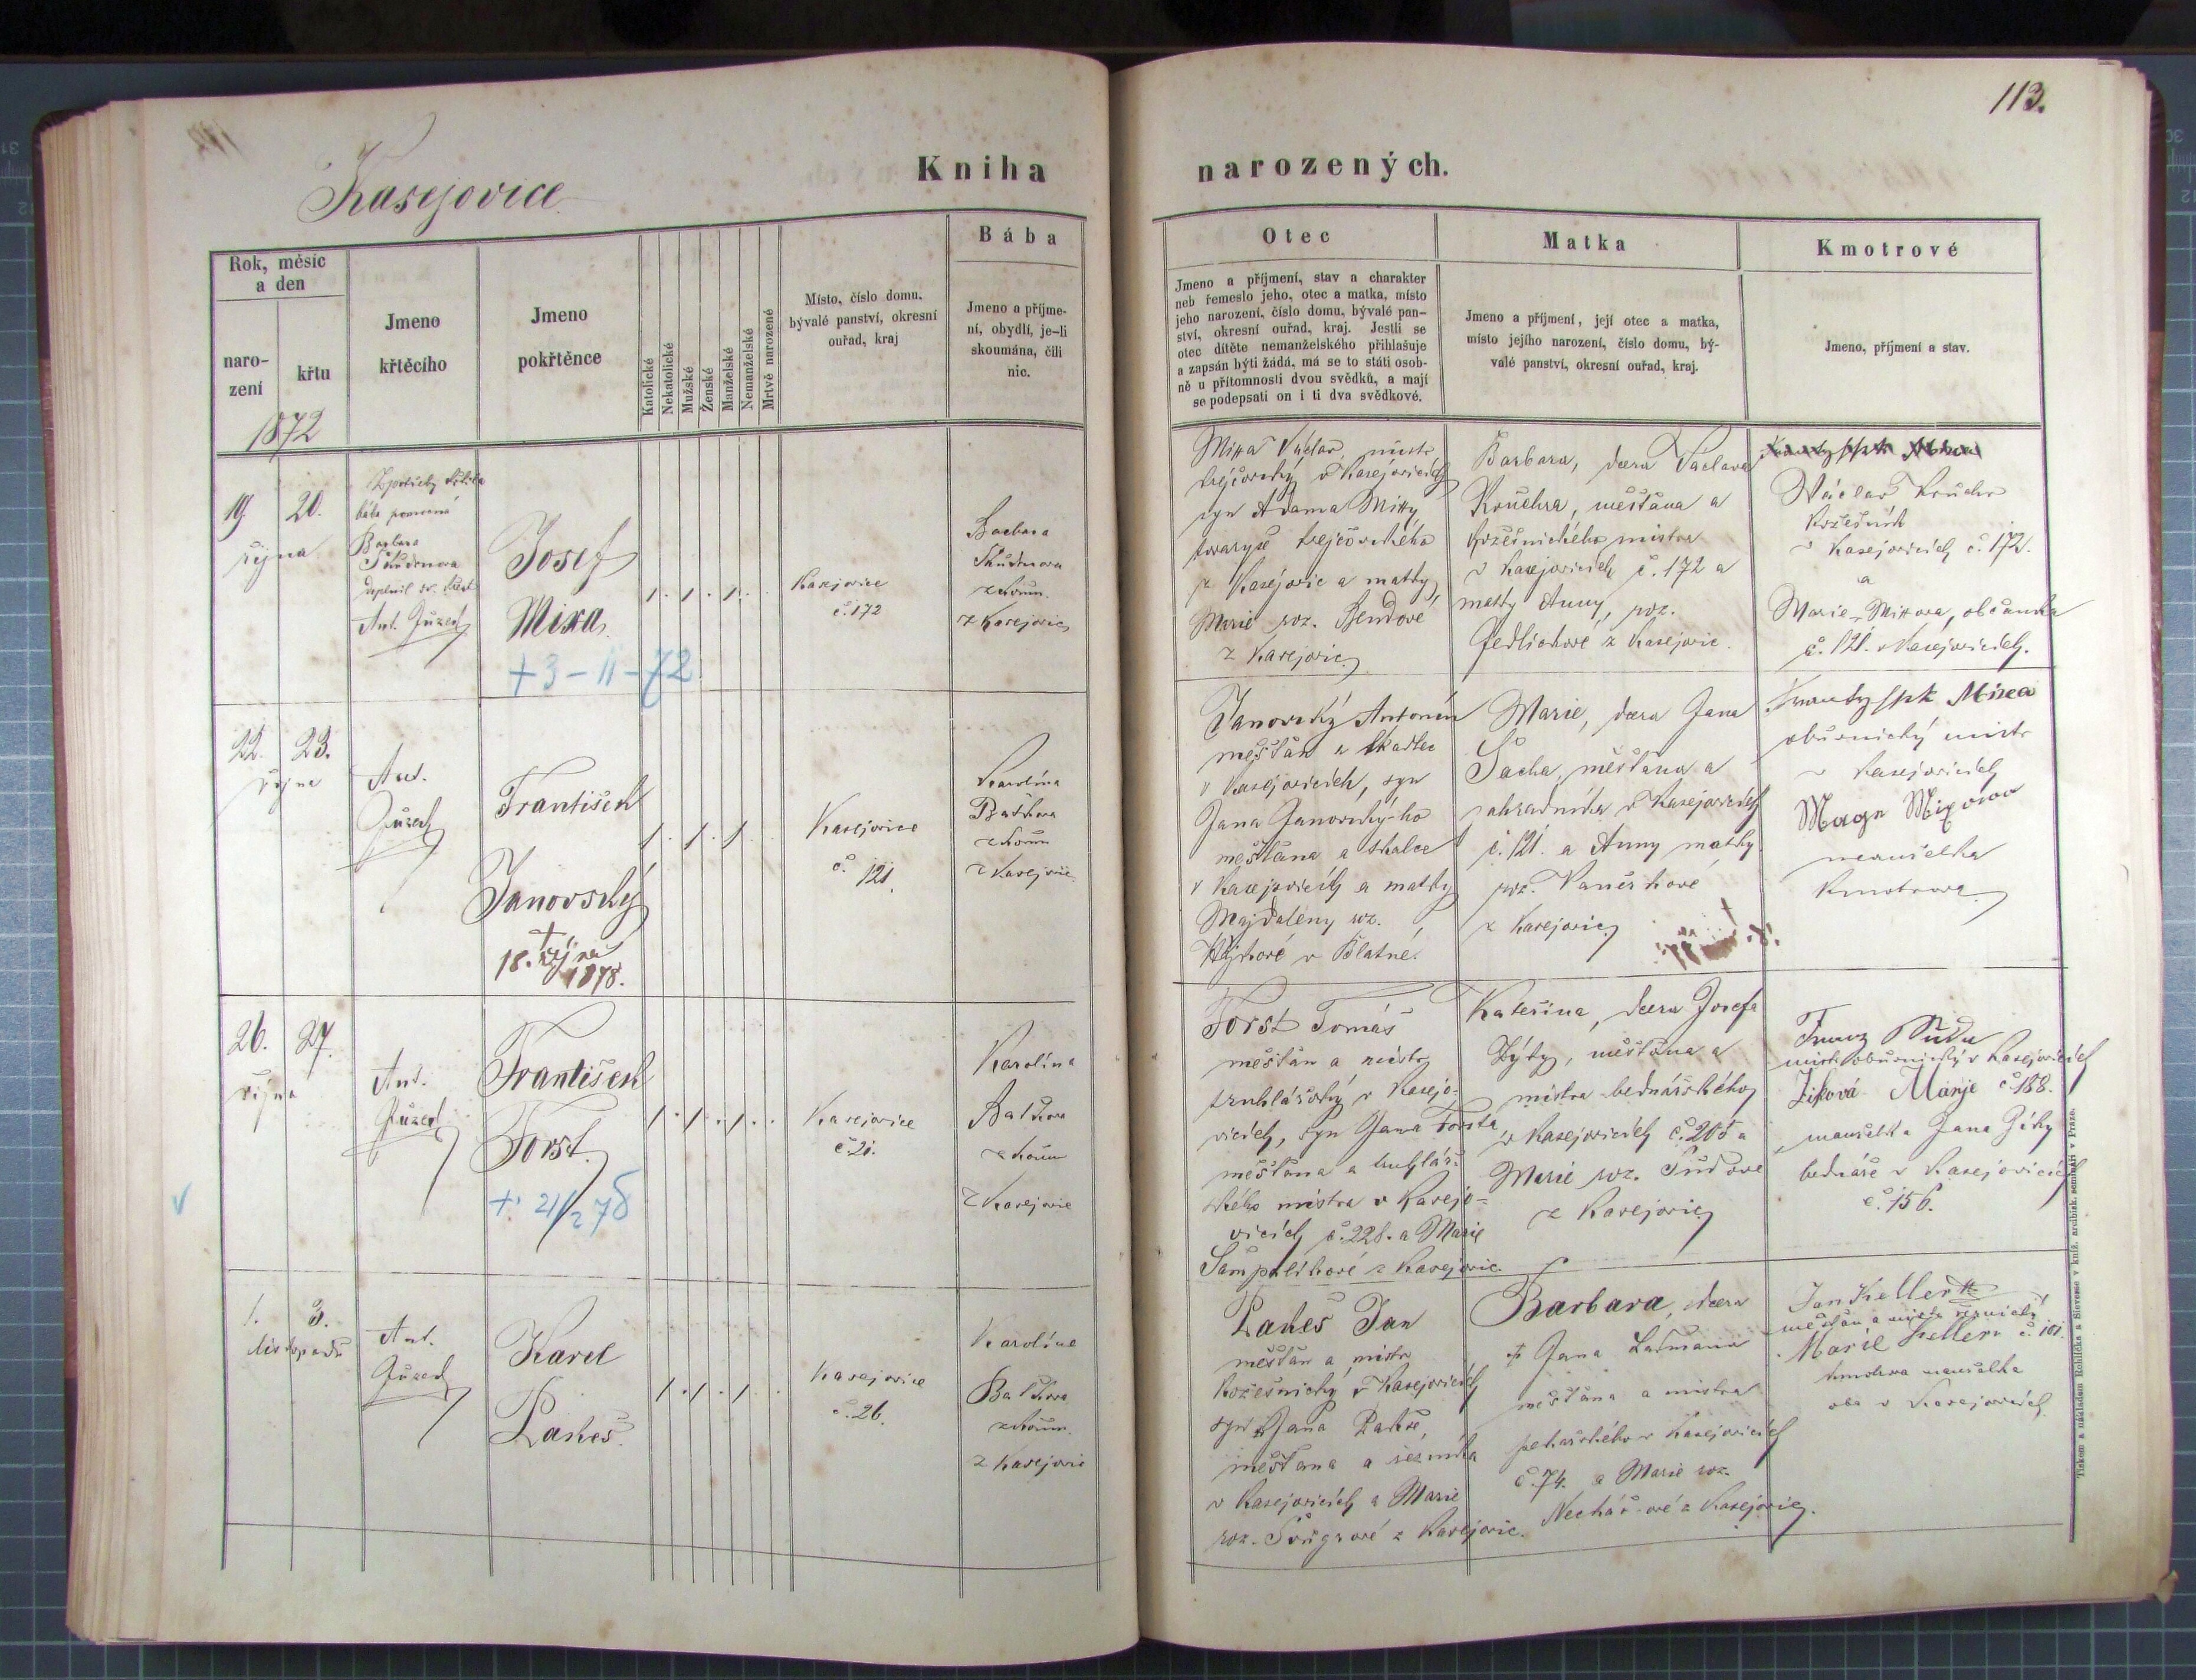 113.
Kasejovice
Kniha
narozených.
Rok, měsíc
a den
naro-
zení
křtu
1872
Jmeno
křtěcího
Jmeno
pokřtěnce
Katolické
Nekatolické
Mužské
Ženské
Manželské
Nemanželské
Mrtvě narozené
Místo, číslo domu,
bývalé panství, okresní
ouřad, kraj
Bába
Jmeno a příjme-
ní, obydlí, je-li
skoumána, čili
nic.
Otec
Jmeno a příjmení, stav a charakter
neb řemeslo jeho, otec a matka, místo
jeho narození, číslo domu, bývalé pan-
ství, okresní ouřad, kraj. Jestli se
otec dítěte nemanželského přihlašuje
a zapsán býti žádá, má se to státi osob-
ně u přítomnosti dvou svědků, a mají
se podepsati on i ti dva svědkové.
Matka
Jmeno a příjmení, její otec a matka,
místo jejího narození, číslo domu, bý-
valé panství, okresní ouřad, kraj.
Kmotrové
Jmeno, příjmení a stav.
19. 20.
října
Z potřeby křtila
bába
Barbara
doplnil sv. křest
Ant. Půzed
Josef
Mixa
+ 3 - 11 - 72
Kasejovice
č. 172
Barbara
zkoum.
z Kasejovic
Mixa Václav, mistr
krejčovský v Kasejovicích
syn Adama Mixy
tovaryše krejčovského
z Kasejovic a matky
Marie roz. Bendové
z Kasejovic
Barbara, dcera Václava
Kouehra, měšťana a
kožešnického mistra
v Kasejovicích č. 172 a
matky Anny, roz.
Jedličkové z Kasejovic.
Václav
Kožešník
v Kasejovicích č. 172.
a
Marie Mixova, občanka
č. 121. v Kasejovicích.
22. 23.
října
Ant.
Půzed
František
Janovský
+
18. října
1878.
Kasejovice
č. 121.
Karolína
Baštova
zkoum
z Kasejovic
Janovský Antonín
měšťan a tkadlec
v Kasejovicích, syn
Jana Janovský-ho
měšťana a tkalce
v Kasejovicích a matky
Majdalény roz.
v Blatné.
Marie, dcera Jana
Sacha, měšťana a
zahradníka v Kasejovicích
č. 121. a Anny matky
roz. Vaněčkové
z Kasejovic
Mixa
obuvnický mistr
v Kasejovicích
Mixova
manželka
kmotrova
26. 27.
října
Ant.
Půzed
František
Forst.
+ 21/2 78
Kasejovice
č. 21.
Karolína
Baštova
zkoum
z Kasejovic
Forst Tomáš
měšťan a mistr
truhlářský v Kasejo-
vicích, syn Jana Forsta
měšťana a truhlář-
ského mistra v Kasejo-
vicích č. 228. a Marie
z Kasejovic.
Kateřina, dcera Josefa
Zýky, měšťana a
mistra bednářského
v Kasejovicích č. 205 a
Marie roz. Dudové
z Kasejovic
Franz Duda
mistr obuvnický v Kasejovicích
Žiková Marje č. 188.
manželka Jana Žiky
bednáře v Kasejovicích
č. 156.
1. 3.
listopadu
Ant.
Půzed
Karel
Pakeš.
Kasejovice
č. 26.
Karolína
Baštova
zkoum.
z Kasejovic
Pakeš Jan
měšťan a mistr
kožešnický v Kasejovicích
syn Jana Pakše,
měšťana a řezníka
v Kasejovicích a Marie
z Kasejovic.
Barbara, dcera
+ Jana
měšťana a mistra
pekařského v Kasejovicích
č. 74. a Marie roz.
z Kasejovic.
Jan Keller
měšťan a mistr řeznický
Marie Keller č. 101.
kmotrova manželka
oba v Kasejovicích
Tiskem a nákladem Rohlíčka a Sieverse v kníž. arcibisk. semináři v Praze.